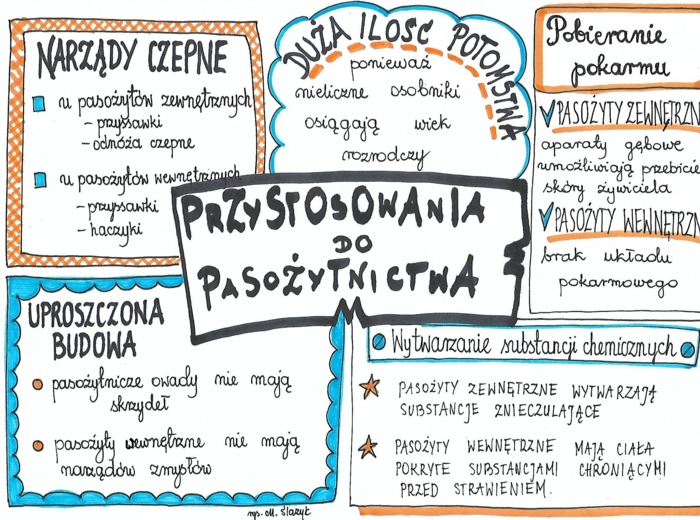 NARZĄDY CZEPNE
u pasożytów zewnętrznych
- przyssawki
- odnóża czepne
u pasożytów wewnętrznych
- przyssawki
- haczyki
DUŻA ILOŚĆ POTOMSTWA
ponieważ
nieliczne osobniki
osiągają wiek
rozrodczy
Pobieranie
pokarmu
PASOŻYTY ZEWNĘTRZN
aparaty gębowe
umożliwiają przebicie
skóry żywiciela
PASOŻYTY WEWNĘTRZN
brak układu
pokarmowego
PRZYSTOSOWANIA
DO
PASOŻYTNICTWA
UPROSZCZONA
BUDOWA
pasożytnicze owady nie mają
skrzydeł
pasożyty wewnętrzne nie mają
narządów zmysłów
rys. M. Ślazyk
Wytwarzanie substancji chemicznych
PASOŻYTY ZEWNĘTRZNE WYTWARZAJĄ
SUBSTANCJE ZNIECZULAJĄCE
PASOŻYTY WEWNĘTRZNE MAJĄ CIAŁA
POKRYTE SUBSTANCJAMI CHRONIĄCYMI
PRZED STRAWIENIEM.